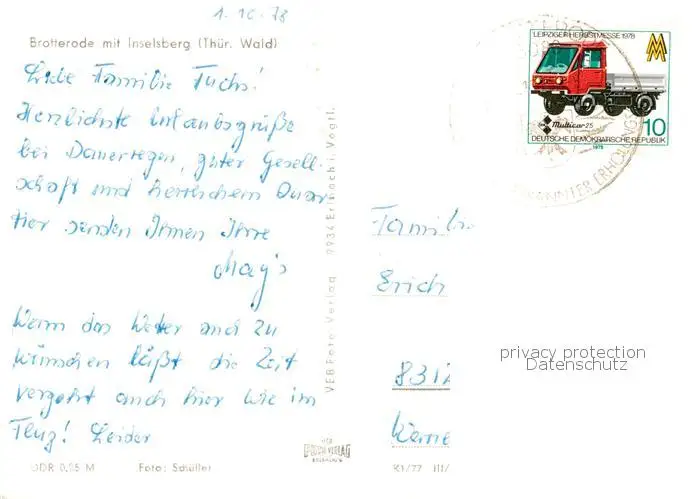 1. 10. 78
Brotterode mit Inselsberg (Thür. Wald)
Liebe Familie Fuchs!
Herzlichste Urlaubsgrüße
bei Dauerregen, guter Gesell-
schaft und herrlichem Quar-
tier senden Ihnen Ihre
May's
Wenn das Wetter auch zu
wünschen läßt die Zeit
vergeht auch hier wie im
Flug! Leider
DDR 0,25 M
Foto: Schüller
VEB Foto-Verlag 9934 Erlbach i. Vogtl.
LEIPZIGER HERBSTMESSE 1978
MM
Multicar 25
10
DEUTSCHE DEMOKRATISCHE REPUBLIK
1978
ERHOLUNGS
Familie
Erich
8312
privacy protection
Datenschutz
K1/77 III/